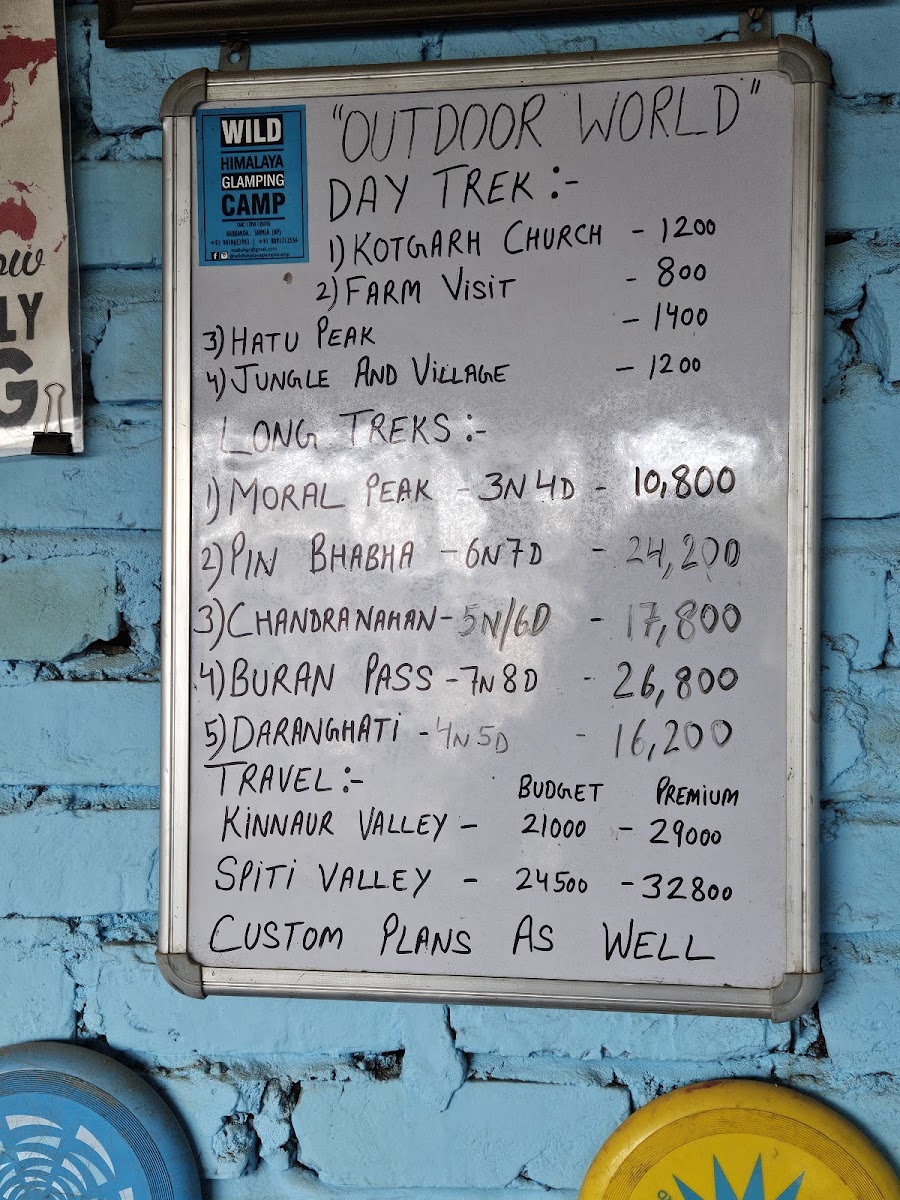 WILD
HIMALAYA
GLAMPING
CAMP
NARKANDA, SHIMLA (HP)
"OUTDOOR WORLD"
DAY TREK :-
1) KOTGARH CHURCH - 1200
2) FARM VISIT - 800
3) HATU PEAK - 1400
4) JUNGLE AND VILLAGE - 1200
LONG TREKS :-
1) MORAL PEAK - 3N 4D - 10,800
2) PIN BHABHA - 6N7D - 24,200
3) CHANDRANAHAN - 5N/6D - 17,800
4) BURAN PASS - 7N 8D - 26,800
5) DARANGHATI - 4N 5D - 16,200
TRAVEL :- BUDGET PREMIUM
KINNAUR VALLEY - 21000 - 29000
SPITI VALLEY - 24500 - 32800
CUSTOM PLANS AS WELL
LY
G